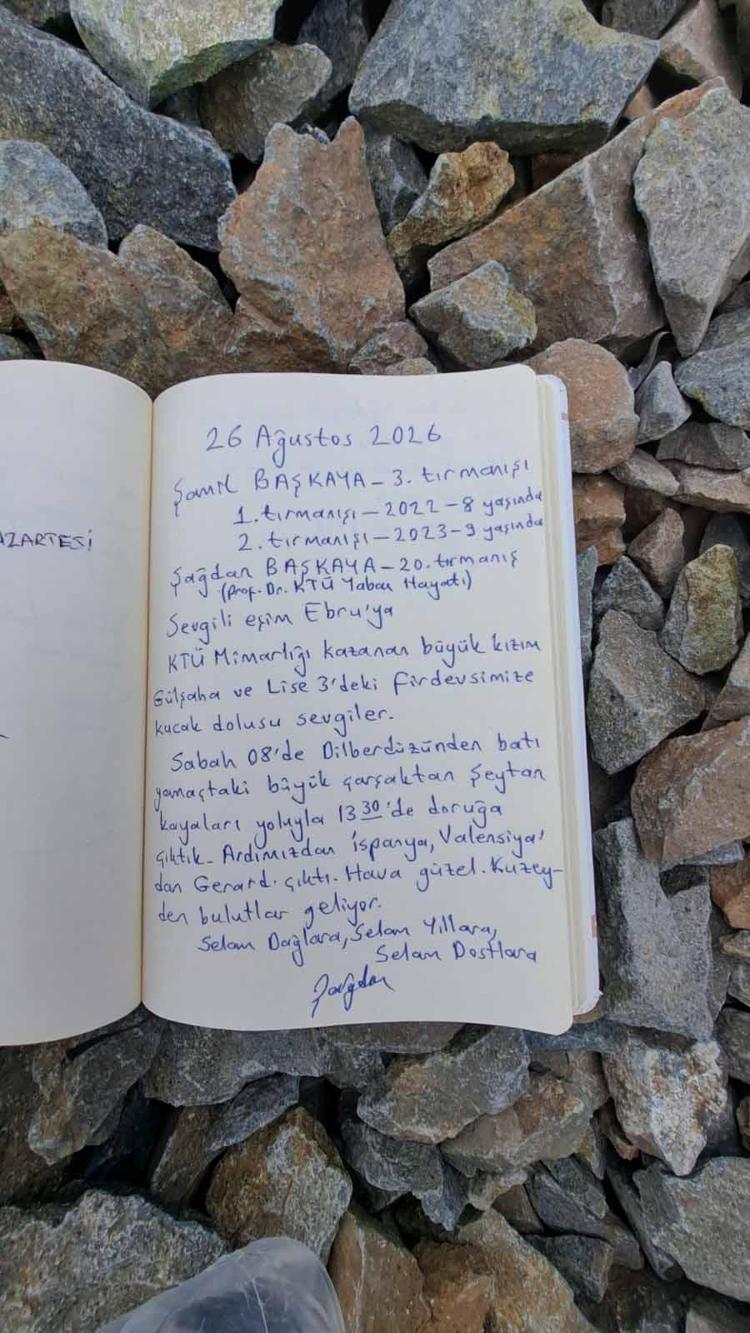 AZARTESİ
26 Ağustos 2026
Şamil BAŞKAYA - 3. tırmanışı
1. tırmanışı - 2022 - 8 yaşında
2. tırmanışı - 2023 - 9 yaşında
Şağdan BAŞKAYA - 20. tırmanış
(Prof. Dr. KTÜ Yaban Hayatı)
Sevgili eşim Ebru'ya
KTÜ Mimarlığı kazanan büyük kızım
Gülşaha ve Lise 3'deki Firdevsimize
kucak dolusu sevgiler.
Sabah 08'de Dilberdüzünden batı
yamaçtaki büyük çarşaktan Şeytan
kayaları yoluyla 13 30'de doruğa
çıktık. Ardımızdan İspanya, Valensiya'
dan Gerard. çıktı. Hava güzel. Kuzey-
den bulutlar geliyor.
Selam Dağlara, Selam Yıllara,
Selam Dostlara
Şağdan